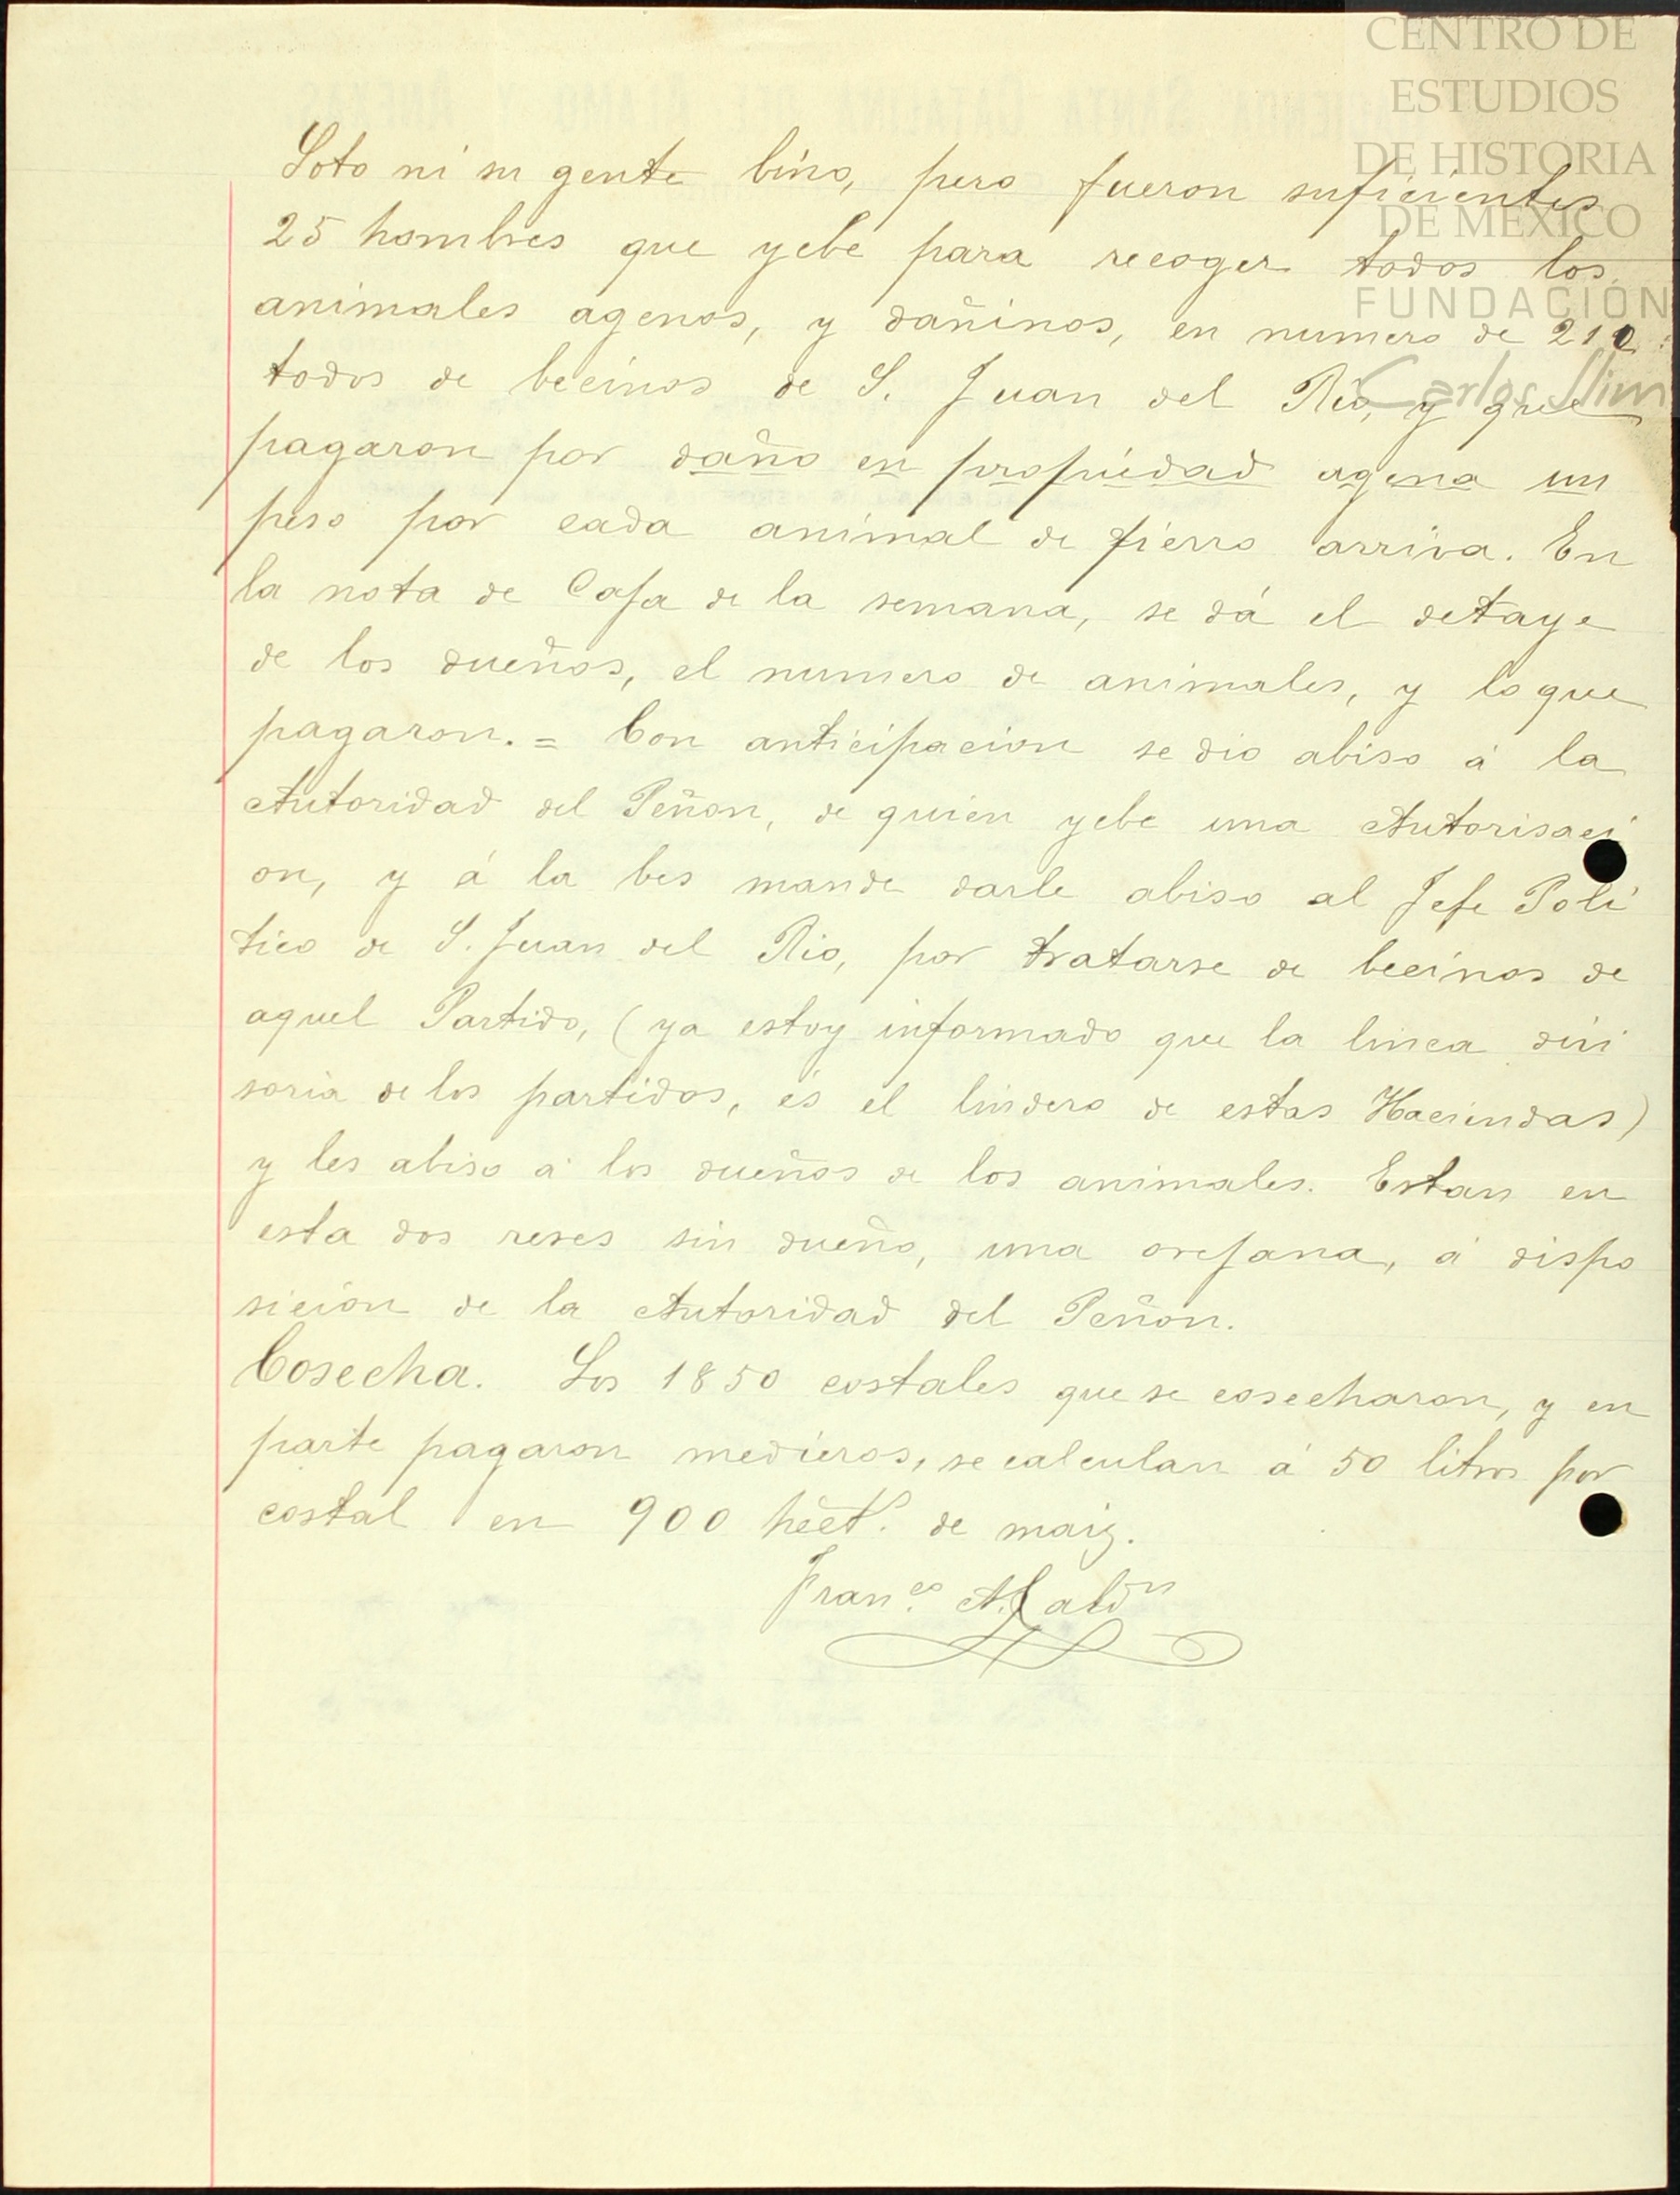 CENTRO DE
ESTUDIOS
DE HISTORIA
DE MEXICO
FUNDACIÓN
Carlos Slim
Soto ni su gente bino, pero fueron suficientes
25 hombres que yebe para recoger todos los
animales agenos, y dañinos, en numero de 210
todos de becinos de S. Juan del Rio, y que
pagaron por daño en propiedad agena un
peso por cada animal de fierro arriva. En
la nota de Caja de la semana, se dá el detaye
de los dueños, el numero de animales, y lo que
pagaron. = Con anticipacion se dio abiso á la
Autoridad del Peñon, de quien yebe una Autorisaci
on, y á la bes mande darle abiso al Jefe Poli
tico de S. Juan del Rio, por tratarse de becinos de
aquel Partido, (ya estoy informado que la linea divi
soria de los partidos, es el lindero de estas Haciendas)
y les abiso á los dueños de los animales. Estan en
esta dos reses sin dueño, una orejana, á dispo
sicion de la Autoridad del Peñon.
Cosecha. Los 1850 costales que se cosecharon, y en
parte pagaron medieros, se calculan á 50 litros por
costal en 900 hect.s de maiz.
Fran.co A.